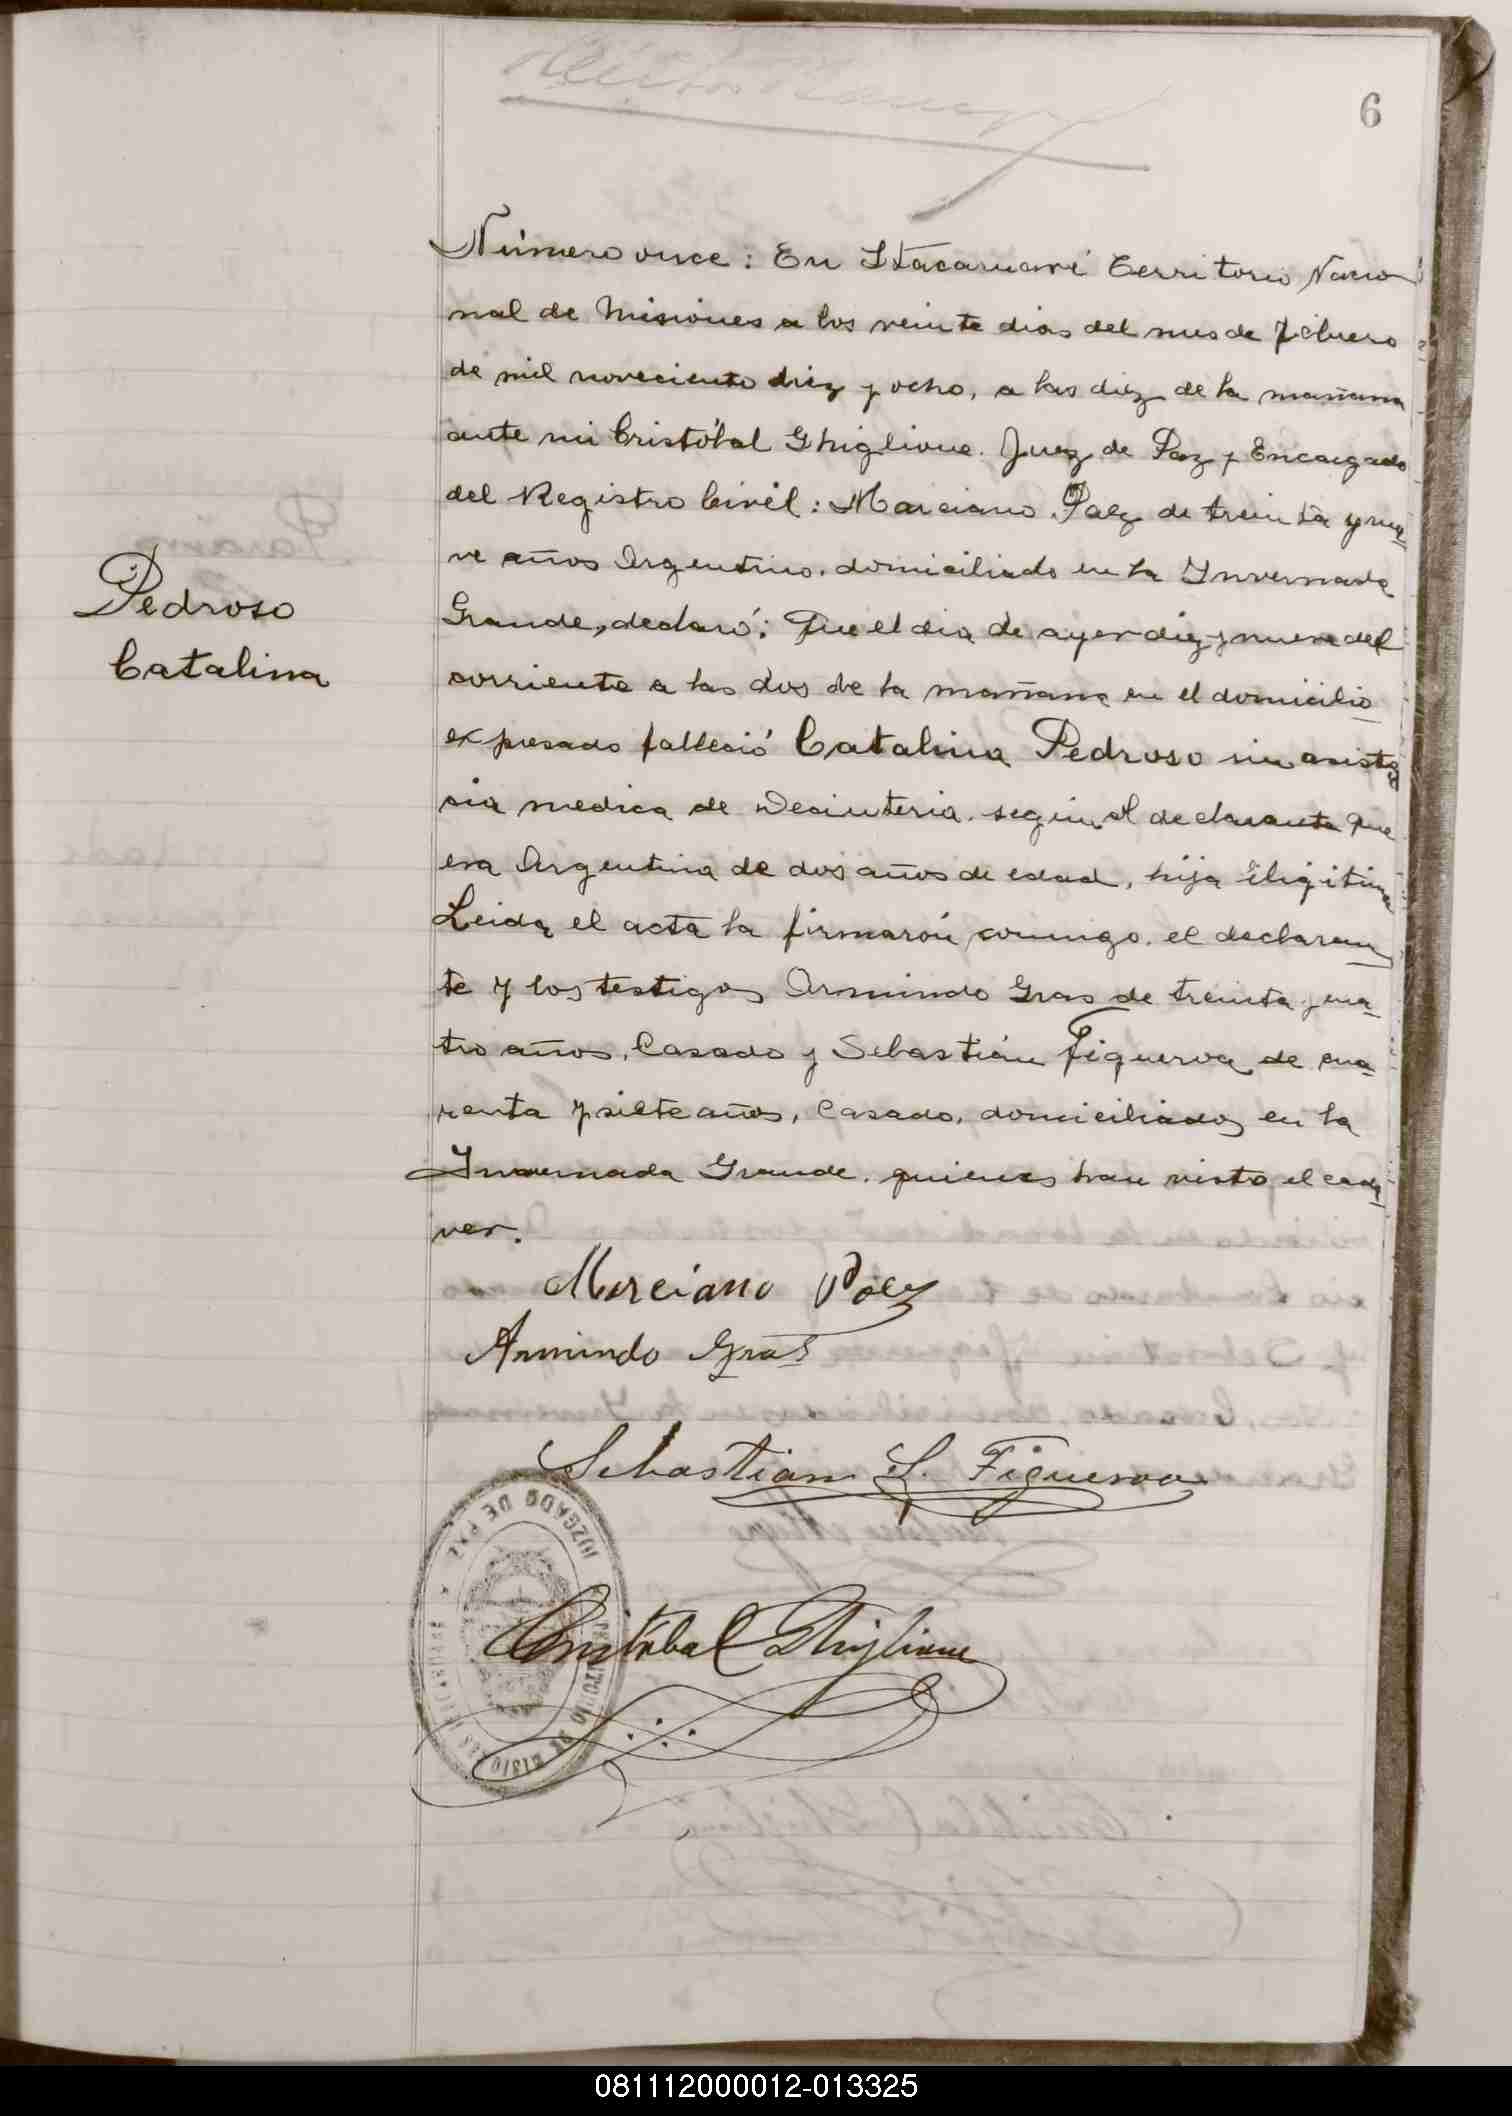 6
Número once: En Itacaruaré Territorio Nacio
nal de Misiones a los veinte dias del mes de febrero
de mil noveciento diez y ocho, a las diez de la mañana
ante mi Cristóbal Ghiglione. Juez de Paz y Encargado
del Registro Civil: Marciano Paez de treinta y nue
ve años Argentino. domiciliado en la Invernada
Grande, declaró: Que el dia de ayer diez y nueve del
corriente a las dos de la mañana en el domicilio
expresado falleció Catalina Pedroso sin asisten
cia medica de Decinteria. según el declarante que
era Argentina de dos años de edad, hija iligitima
Leida el acta la firmarón conmigo. el declaran
te y los testigos Armindo Gras de treinta y cua
tro años, Casado y Sebastián Figueroa de cua
renta y siete años, Casado, domiciliados en la
Invernada Grande. quienes han visto el cada
ver.
Pedroso
Catalina
Marciano Paez
Armindo Gras
Sebastian S. Figueroa
JUZGADO DE PAZ
TERRITORIO DE MISIONES
Cristóbal Ghiglione
081112000012-013325